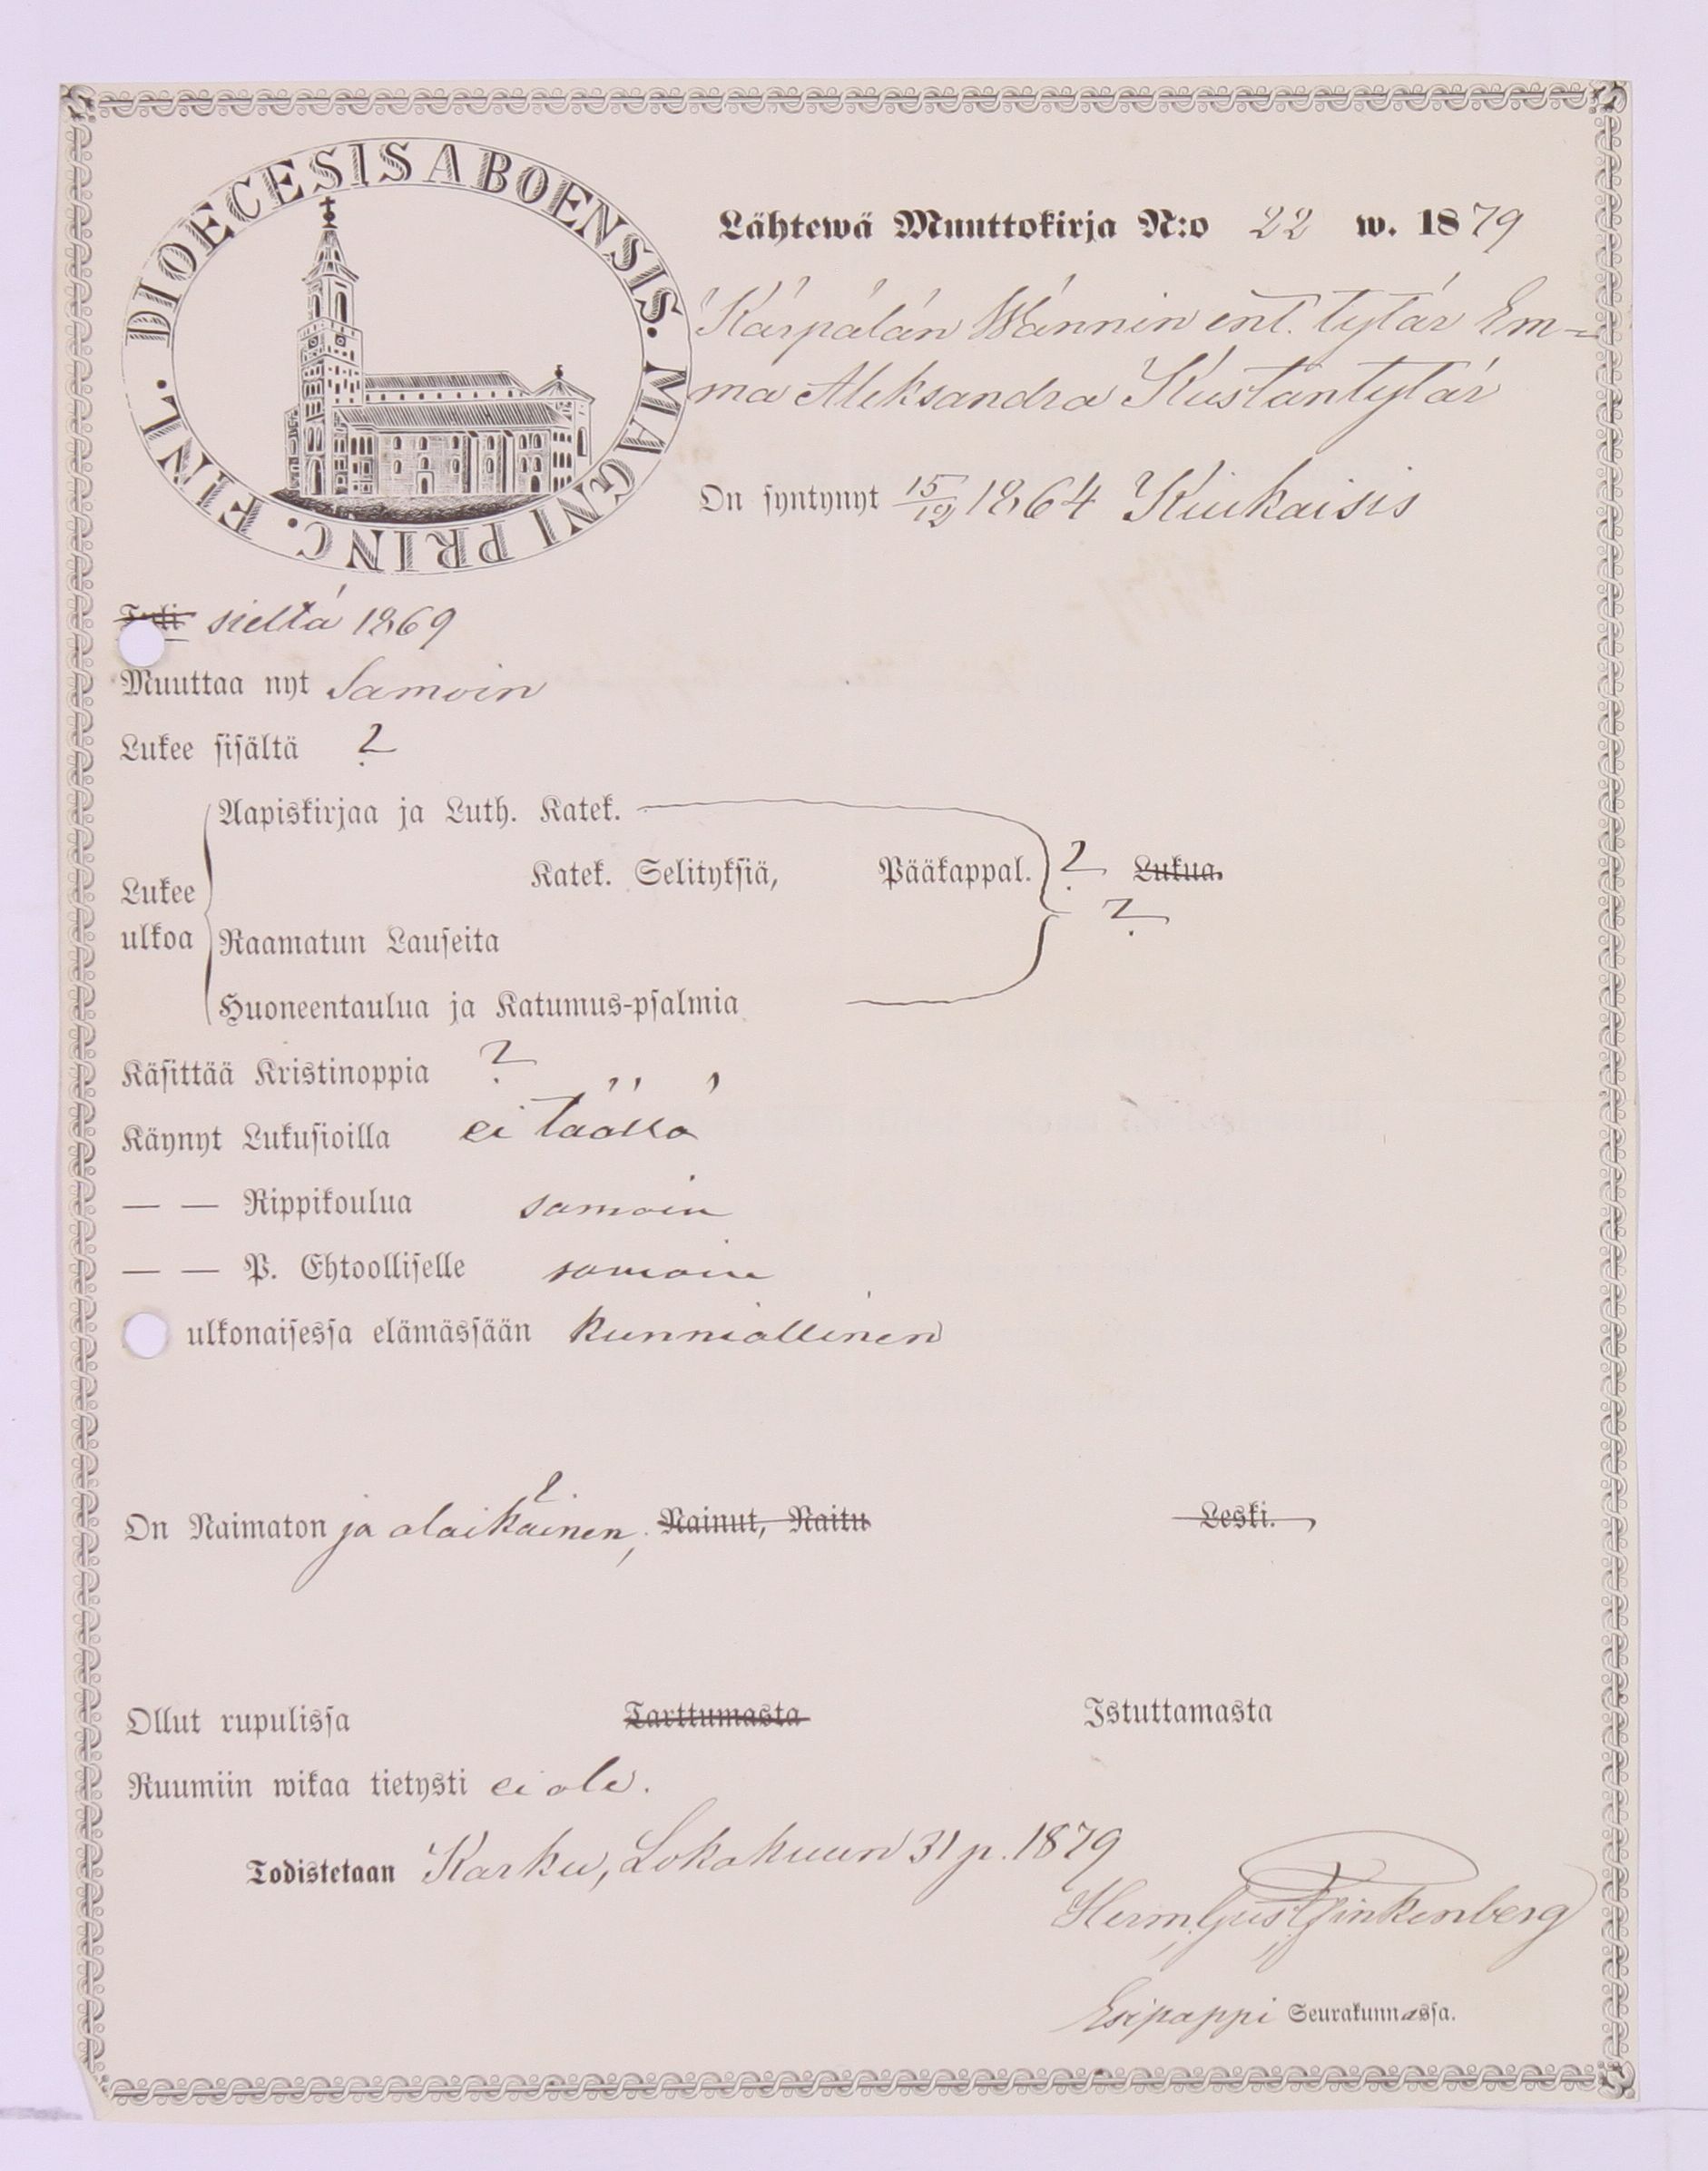 DIOECESIS ABOENSIS. MAGNI PRINC. FINL.
Lähtewä Muuttokirja N:o 22 w. 1879
Kärpälän Wännin ent. tytär Em=
ma Aleksandra Kustantytär
On syntynyt 15/12 1864 Kiukaisis
Tuli sieltä 1869
Muuttaa nyt Samoin
Lukee sisältä ?
Aapiskirjaa ja Luth. Katek.
Katek. Selityksiä, Pääkappal. ? Lukua.
Lukee
ulkoa
?
Raamatun Lauseita
Huoneentaulua ja Katumus-psalmia
Käsittää Kristinoppia ?
Käynyt Lukusioilla ei täällä
— — Rippikoulua samoin
— — P. Ehtoolliselle samoin
ulkonaisessa elämässään kunniallinen
On Naimaton ja alaikäinen, Nainut, Naitu Leski.
Ollut rupulissa Tarttumasta Istuttamasta
Ruumiin wikaa tietysti ei ole.
Todistetaan Karku, Lokakuun 31 p. 1879
Herm. Gust. Zinkenberg
Esipappi Seurakunnassa.